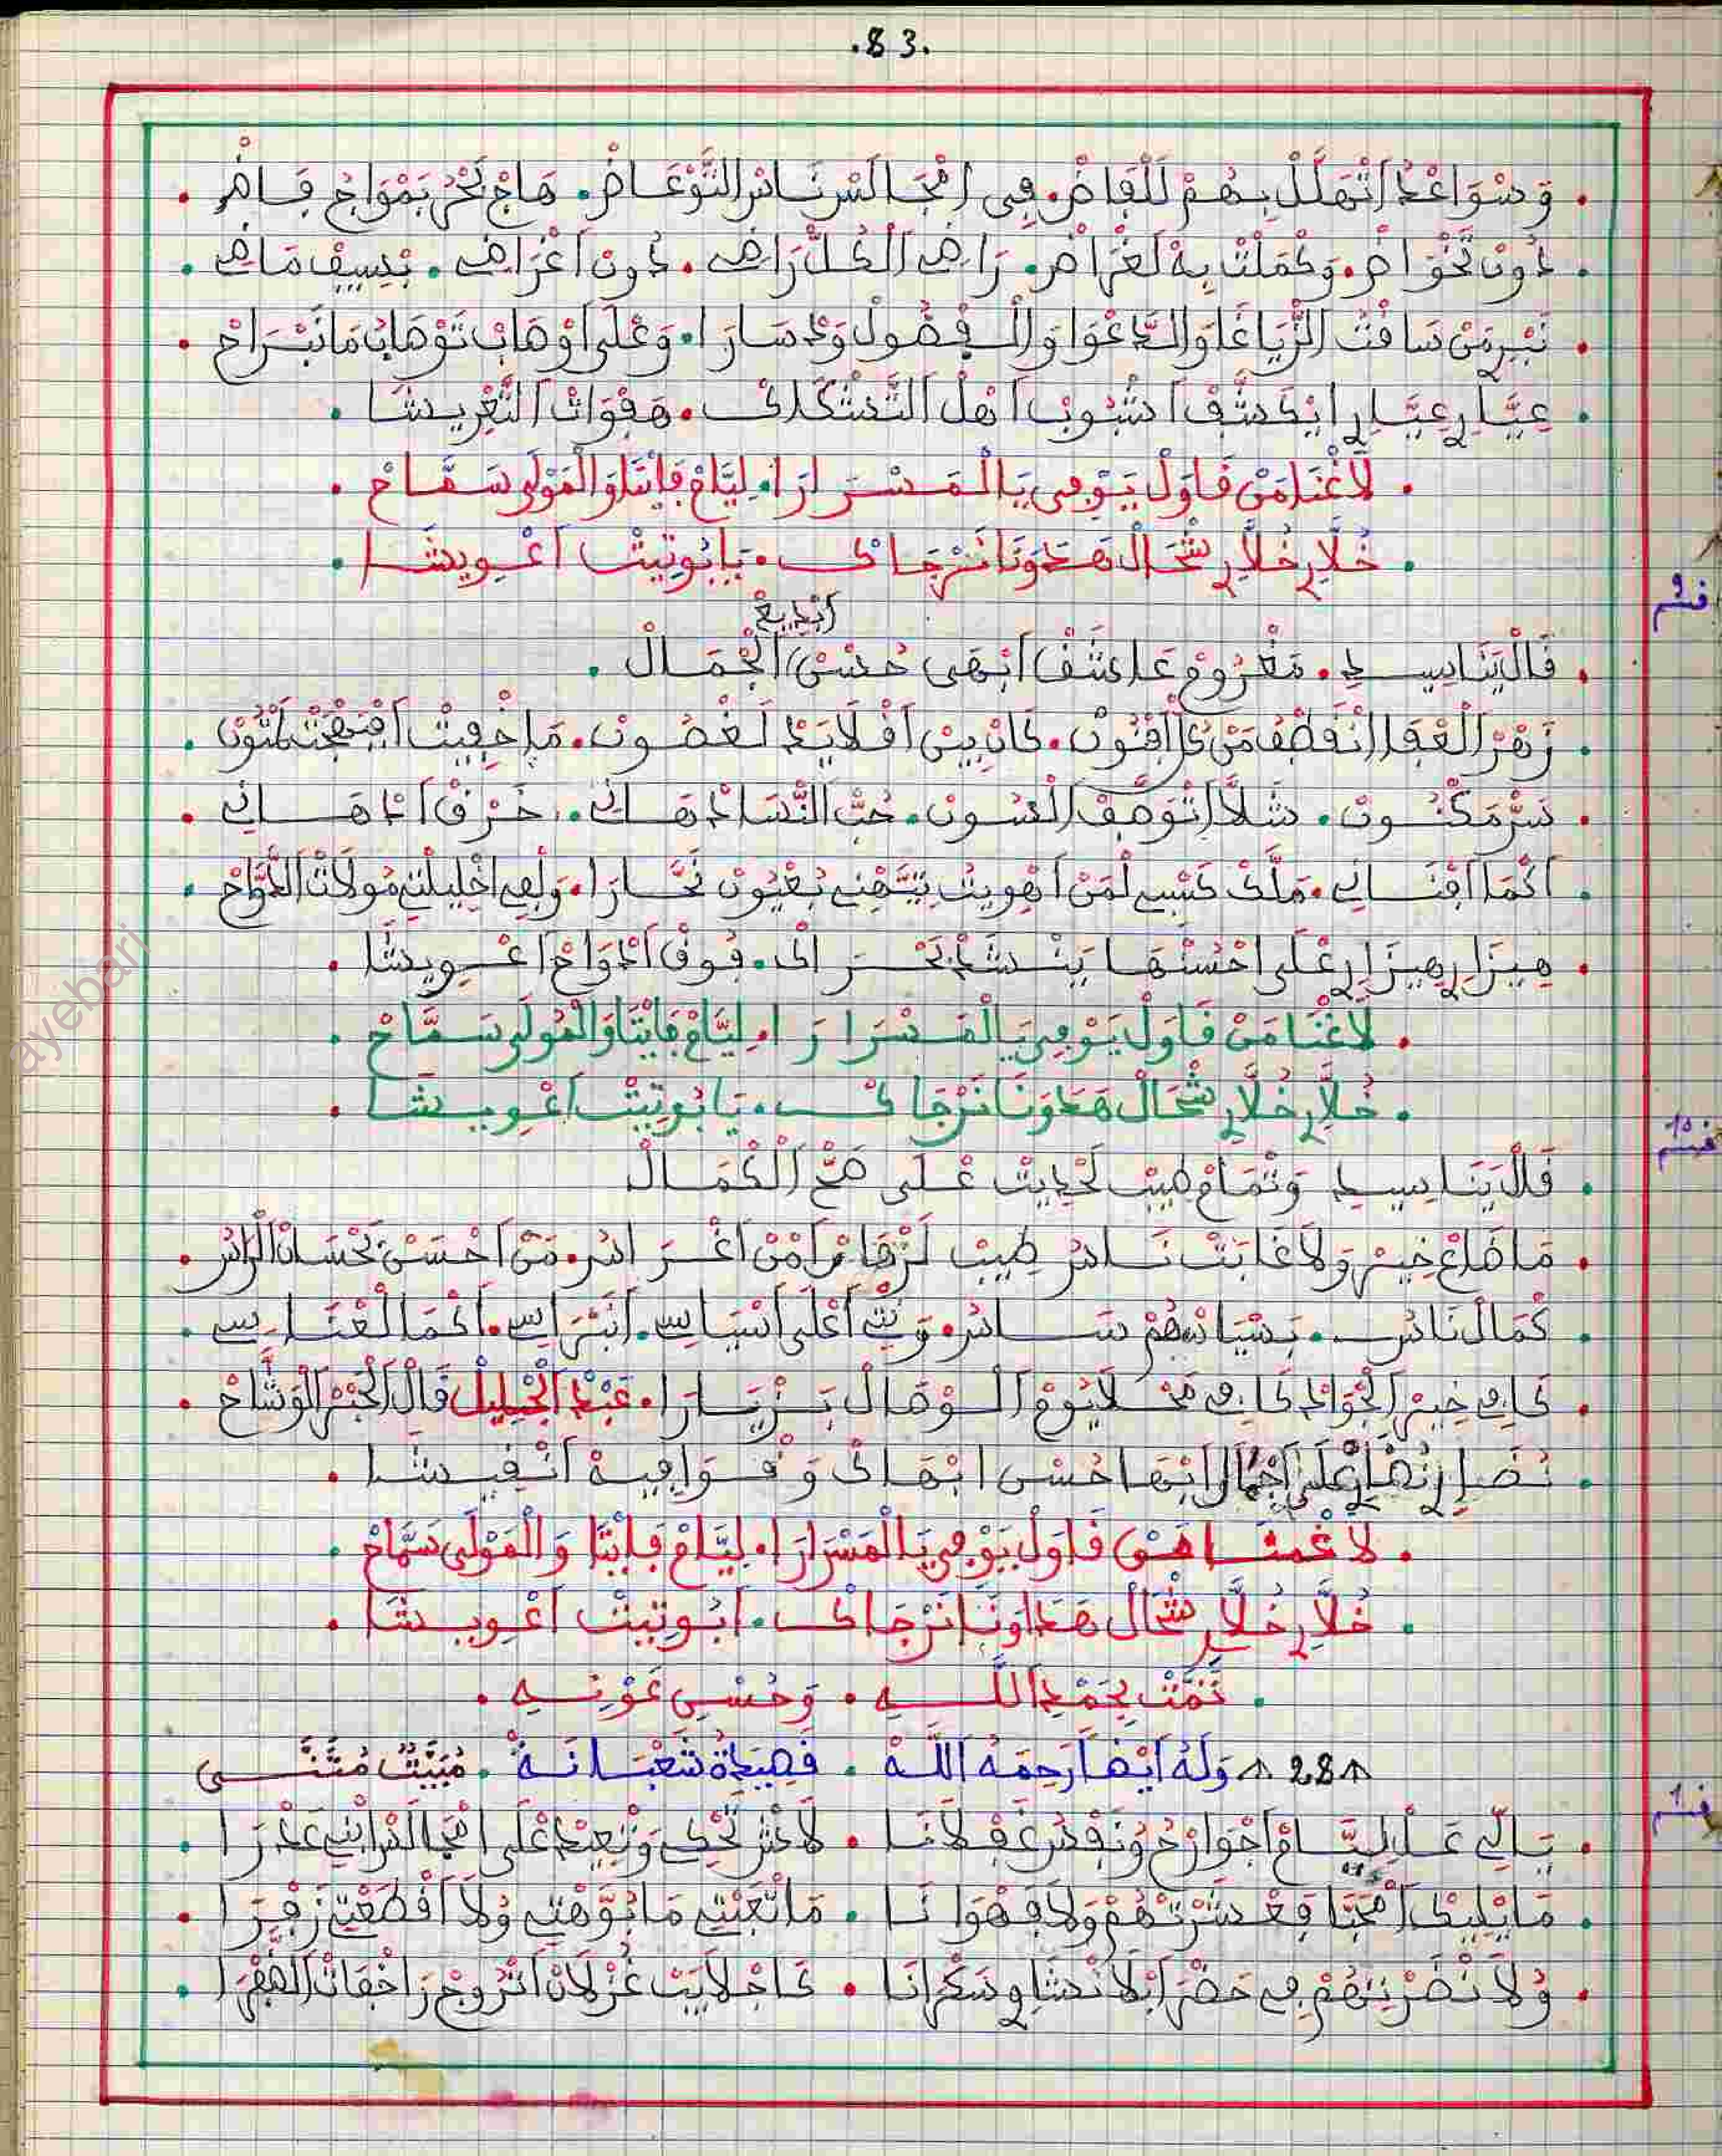 .83.
. وَسْوَاعْدْ اتْهَلَّلْ بِهُمْ لَلْقَاضْ. فِي امْجَالَسْ نَاسْ التَّوْعَاضْ. هَاجْ بَحْرُ بَمْوَاجْ فَاضْ .
. دُونْ تَخْوَاضْ. وَكْمَلْتْ بِهْ لَغْرَاضْ. رَاضِي الْكُلّْ رَاضِي. دُونْ اَعْرَاضِي. بْسِيفْ مَاضِي .
. نَبْرِ مَنْ سَاقْتْ الزّْيَاغَا وَالدَّعْوَا وَالْفْضُولْ وَدْسَارَا. وَعْلَى اوْهَابْ تَوْهَابْ مَانَبْرَاحْ .
. عِيَّارِ عِيَّارِ ايْكَشَّفْ اعْيُوبْ اَهْلْ التَّشْكَاكْ. هَفْوَاتْ التَّغْرِيشَا .
. لَاغْنَا مَنْ قَاوَلْ يَوْفِي يَا الْمَسْرَارَا. لِيَّامْ فَايْتَا وَالْمَوْلَى سَمَّاحْ .
. خُلَّارِ خُلَّارِ شْحَالْ هَدَا وَنَا نَرْجَاكْ. يَا بُوتِيتْ اَعْوِيشَا .
قسم 9
ابْدِيعْ
. قَالْ يَنَا سِيدِ. مَغْرُومْ عَاشَقْ اَبْهَى حُسْنْ الْجْمَالْ .
. زَهْرْ الْعْقَا انْقَطْفْ مَنْ كُلّْ افْنُونْ. كَانْ بِينْ اَقْلَايَدْ لَغْصُونْ. مَا خْفِيتْ
. سَرّْ مَكْنُونْ. شَلَّا اتْوَصَّفْ الْسُونْ. حُبّْ النّْسَا دْهَانِي. خَرْقْ اَدْهَانِي .
. اَكْمَا اَفْنَانِي. مَلَّكْ كَسْبِي لْمَنْ اَهْوِيتْ تَيَّهْنِي بُعْيُونْ نَحَّارَا. وَلْفِي اخْلِيلْتِي مُولَاتْ الدُّوَّاحْ .
. هِيزَارِ هِيزَارِ عْلَى احْسُنْهَا يَنْشَدْ بَحْرَاكْ. فُوقْ اَدْوَاحْ اَعْوِيشَا .
. لَاغْنَا مَنْ قَاوَلْ يَوْفِي يَا الْمَسْرَارَا. لِيَّامْ فَايْتَا وَالْمَوْلَى سَمَّاحْ .
. خُلَّارِ خُلَّارِ شْحَالْ هَدَا وَنَا نَرْجَاكْ. يَا بُوتِيتْ اَعْوِيشَا .
قسم 10
. قَالْ يَنَا سِيدِ وَتْمَامْ طِيبْ لَحْدِيتْ عْلَى صَحّْ الْكْمَالْ
. مَا ضَاعْ خِيرْ وَلَا غَابَتْ نَاسْ طِيبْ لَزْهَارْ اَمْنْ اَغْرَاسْ. مَنْ اَحْسَنْ بَحْسَانْ الرَّاسْ .
. كْمَالْ نَاسْ. بَسْيَاسْهُمْ سَاسْ. وَبْنِي اَعْلَى اَسْيَاسِي. اَنْبْرَاسِي. اَكْمَا لَغْنَاسِي .
. كَافِي خِيرْ الْجْوَادْ كَافِي مَحْلَا يُومْ الْوْصَالْ بَزْيَارَا. عَبْدْ الْجَلِيلْ قَالْ الْحَبْرْ الْوَشَّاحْ .
. نْضَارِ نْضَارِ عْلَى اجْمَالْ ابْهَا حُسْنْ ابْهَاكْ وَقْوَافِيهْ اَنْفِيشَا .
. لَا غْمنَا مَنْ قَاوَلْ يَوْفِي يَا الْمَسْرَارَا. لِيَّامْ فَايْتَا وَالْمَوْلَى سَمَّاحْ .
. خُلَّارِ خُلَّارِ شْحَالْ هَدَا وَنَا نَرْجَاكْ. اَبُوتِيتْ اَعْوِيشَا .
. تَمَّتْ بِحَمْدِ اللَّهِ . وَحُسْنِ عَوْنِهِ .
28 وَلَهُ اَيْضًا رَحِمَهُ اللَّهْ . قَصِيدَةْ شَعْبَانَةْ . مُبَيَّتْ مُتَنَّى
قسم 1
. يَالِّي عَلْلِيَّامْ اَجْوَارْحُ وُنَفْسُ غَفْلَانَا . لَاشْ تَحْكِي وَتْعِيدْ عْلَى امْجَالَسْ ابْنِي عَدْرَا .
. مَا يْلِيكْ اَمْحَبَّا فِعْشَرْتْهُمْ وَلَا قَهْوَانَا . مَا تْعَبْتِي مَا تْوَّهْتِي وُلَا اقْطَعْتِي زَفْرَا .
. وُلَا نْضَرْتِيهُمْ فِي حَضْرَا ابْلَا نْشَا وِسَكْرَانَا . عَاجْلَايَبْ غُزْلَانْ اتْرُوجْ رَاخْفَاتْ الضَّفْرَا .
ayebari